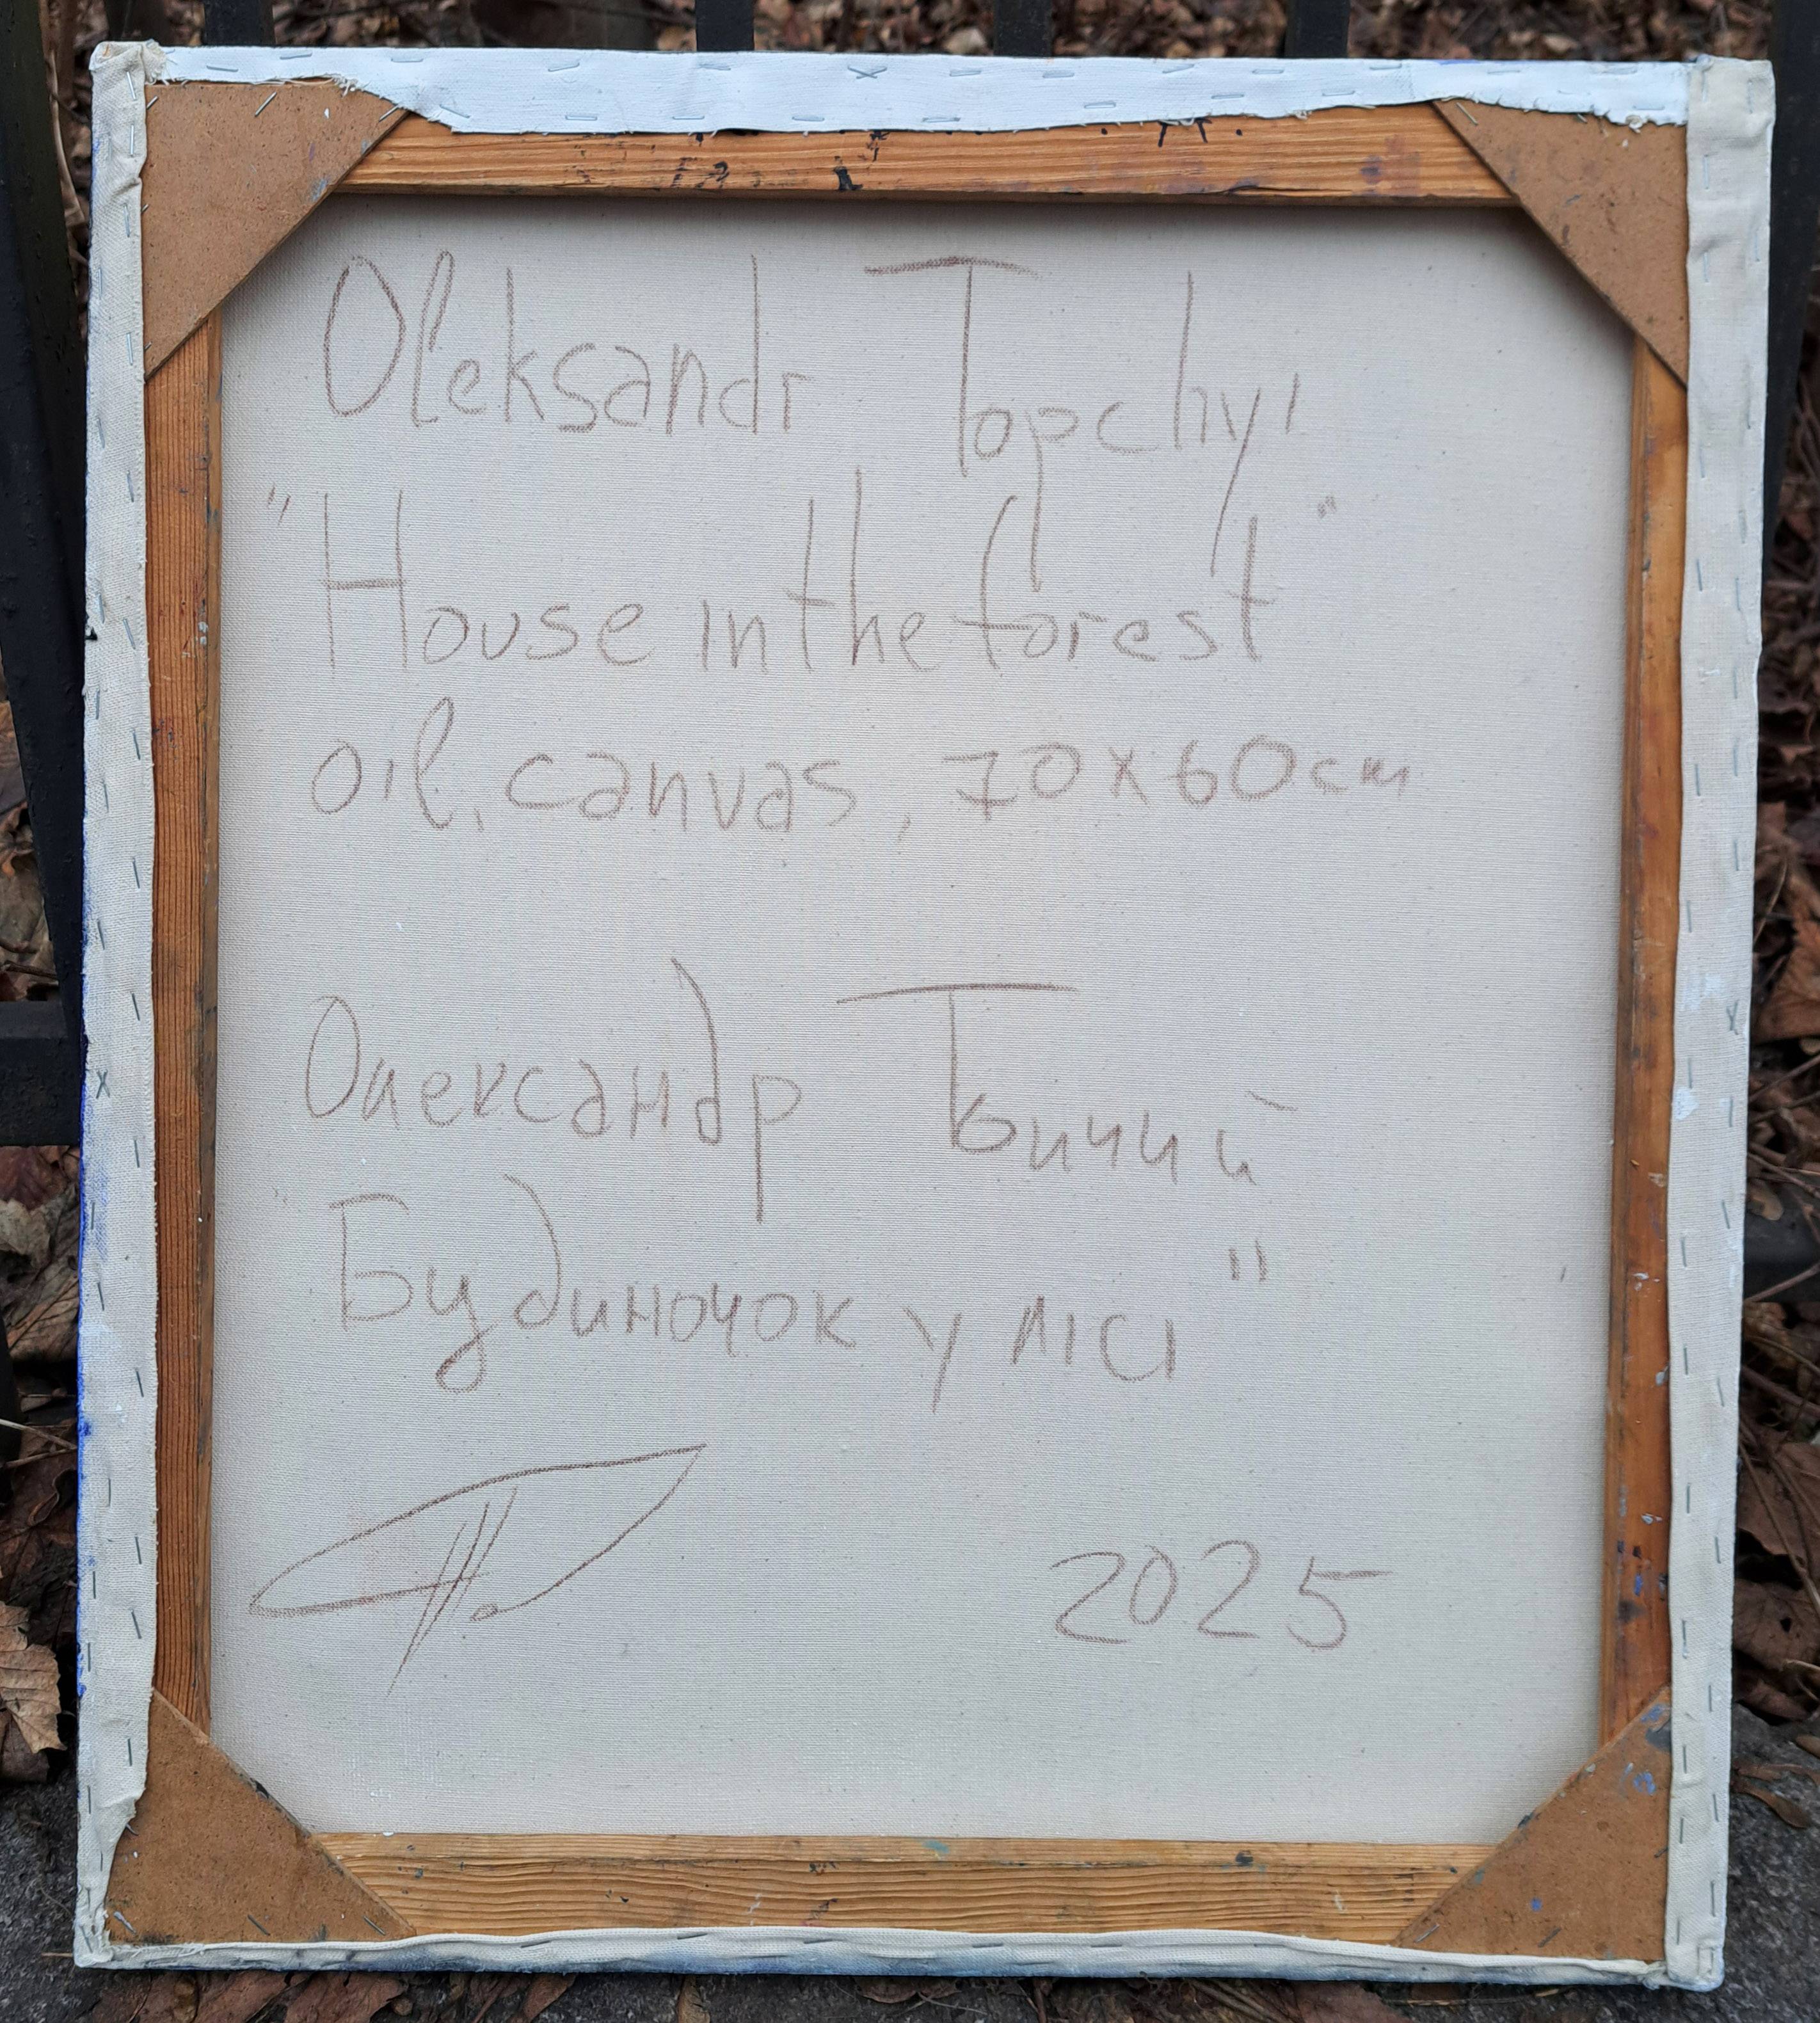 Oleksandr Topchyi
"House in the forest"
oil, canvas, 70x60cm
Олександр Топчий
Будиночок у лісі"
2025